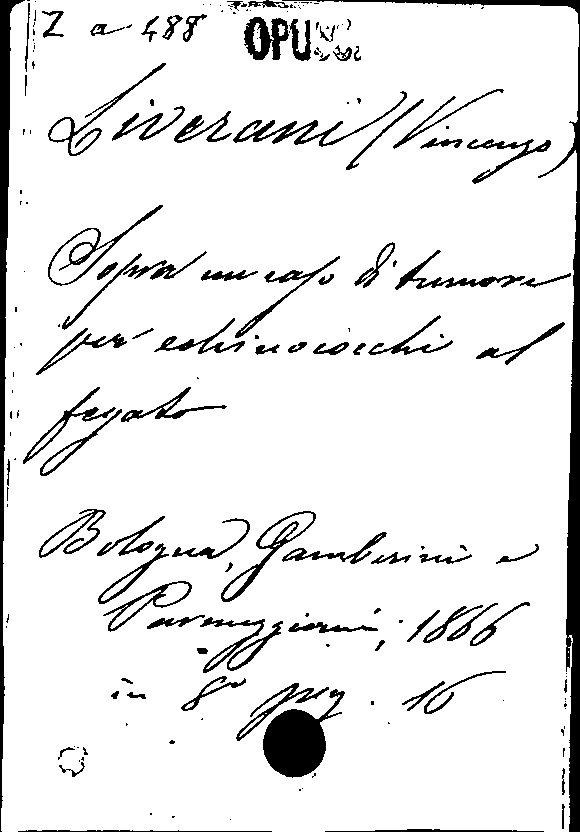 Z a 488 OPUSC.
Liverani (Vincenzo)
Sopra un caso di tumore
per echinococchi al
fegato
Bologna, Gamberini e
Parmeggiani, 1866
in 8° pag. 16